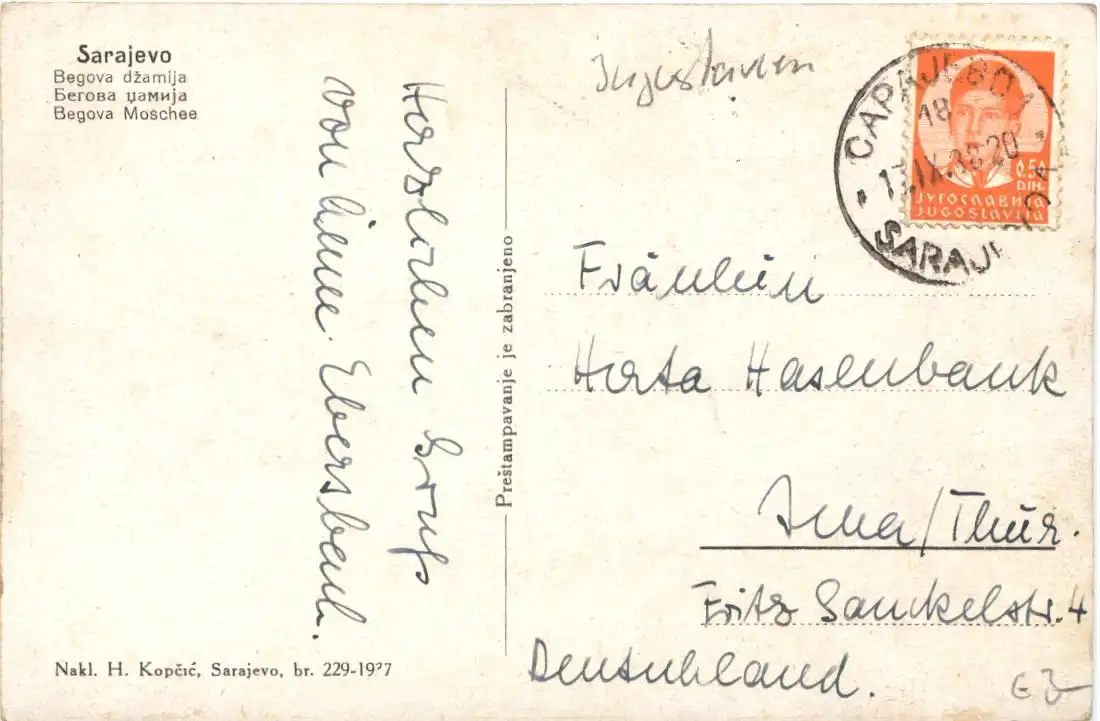 Sarajevo
Begova džamija
Бегова џамија
Begova Moschee
Herzlichen Gruß
von Anne Ebersbach.
Preštampavanje je zabranjeno
Nakl. H. Kopčić, Sarajevo, br. 229-1937
Jugoslavien
САРАЈЕВО 1
18
13.IX.38 20
SARAJEVO
0.50
DIN.
ЈУГОСЛАВИЈА
JUGOSLAVIJA
Fräulein
Herta Hasenbank
Jena/Thür.
Fritz Sauckelstr. 4
Deutschland.